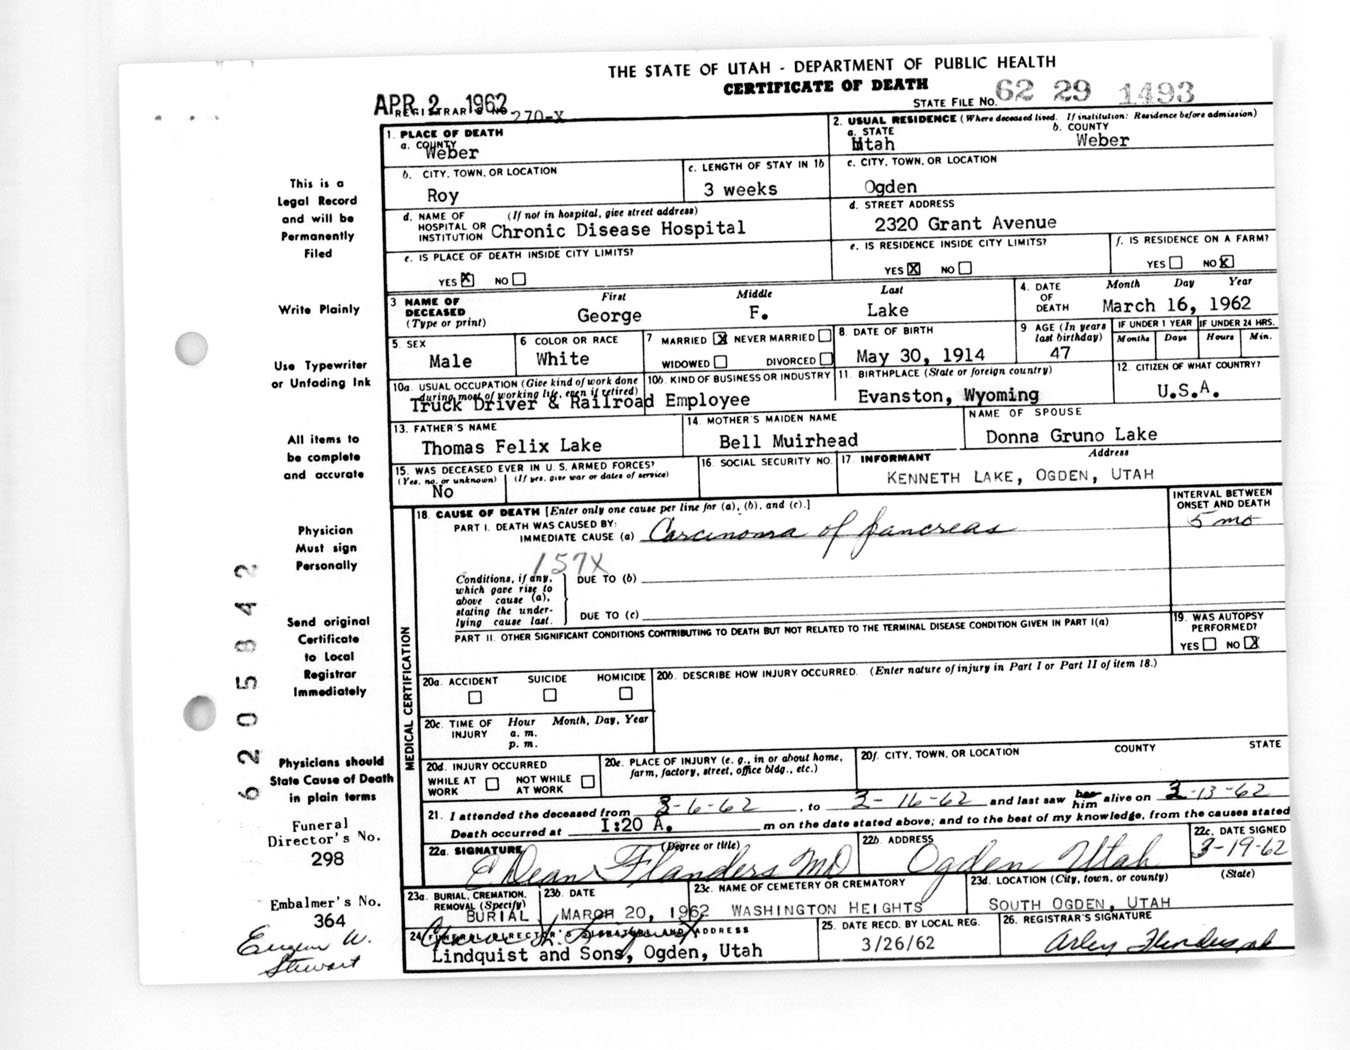 THE STATE OF UTAH - DEPARTMENT OF PUBLIC HEALTH
CERTIFICATE OF DEATH
APR 2 1962
REGISTRAR'S NO. 270-X
STATE FILE NO. 62 29 1493
1. PLACE OF DEATH
a. COUNTY
Weber
2. USUAL RESIDENCE (Where deceased lived. If institution: Residence before admission)
a. STATE
Utah
b. COUNTY
Weber
b. CITY, TOWN, OR LOCATION
Roy
c. LENGTH OF STAY IN 1b
3 weeks
c. CITY, TOWN, OR LOCATION
Ogden
d. NAME OF HOSPITAL OR INSTITUTION
(If not in hospital, give street address)
Chronic Disease Hospital
d. STREET ADDRESS
2320 Grant Avenue
e. IS PLACE OF DEATH INSIDE CITY LIMITS?
YES X NO
e. IS RESIDENCE INSIDE CITY LIMITS?
YES X NO
f. IS RESIDENCE ON A FARM?
YES NO X
3 NAME OF DECEASED
(Type or print)
First Middle Last
George F. Lake
4. DATE OF DEATH
Month Day Year
March 16, 1962
5. SEX
Male
6 COLOR OR RACE
White
7 MARRIED X NEVER MARRIED
WIDOWED DIVORCED
8 DATE OF BIRTH
May 30, 1914
9 AGE (In years last birthday)
47
IF UNDER 1 YEAR
Months Days
IF UNDER 24 HRS.
Hours Min.
10a. USUAL OCCUPATION (Give kind of work done during most of working life, even if retired)
10b. KIND OF BUSINESS OR INDUSTRY
Truck Driver & Railroad Employee
11. BIRTHPLACE (State or foreign country)
Evanston, Wyoming
12. CITIZEN OF WHAT COUNTRY?
U.S.A.
13. FATHER'S NAME
Thomas Felix Lake
14. MOTHER'S MAIDEN NAME
Bell Muirhead
NAME OF SPOUSE
Donna Gruno Lake
15. WAS DECEASED EVER IN U. S. ARMED FORCES?
(Yes, no, or unknown) (If yes, give war or dates of service)
No
16. SOCIAL SECURITY NO.
17. INFORMANT Address
KENNETH LAKE, OGDEN, UTAH
MEDICAL CERTIFICATION
18. CAUSE OF DEATH [Enter only one cause per line for (a), (b), and (c).]
PART I. DEATH WAS CAUSED BY:
IMMEDIATE CAUSE (a) Carcinoma of pancreas
INTERVAL BETWEEN ONSET AND DEATH
5 mo
157X
Conditions, if any, which gave rise to above cause (a), stating the underlying cause last.
DUE TO (b)
DUE TO (c)
PART II. OTHER SIGNIFICANT CONDITIONS CONTRIBUTING TO DEATH BUT NOT RELATED TO THE TERMINAL DISEASE CONDITION GIVEN IN PART I(a)
19. WAS AUTOPSY PERFORMED?
YES NO X
20a. ACCIDENT SUICIDE HOMICIDE
20b. DESCRIBE HOW INJURY OCCURRED. (Enter nature of injury in Part I or Part II of item 18.)
20c. TIME OF INJURY
Hour Month, Day, Year
a. m.
p. m.
20d. INJURY OCCURRED
WHILE AT WORK NOT WHILE AT WORK
20e. PLACE OF INJURY (e. g., in or about home, farm, factory, street, office bldg., etc.)
20f. CITY, TOWN, OR LOCATION COUNTY STATE
21. I attended the deceased from 3-6-62, to 3-16-62 and last saw her him alive on 3-13-62
Death occurred at 1:20 A. m on the date stated above; and to the best of my knowledge, from the causes stated
22a. SIGNATURE (Degree or title)
E Dean Flanders MD
22b. ADDRESS
Ogden Utah
22c. DATE SIGNED
3-19-62
23a. BURIAL, CREMATION, REMOVAL (Specify)
BURIAL
23b. DATE
MARCH 20, 1962
23c. NAME OF CEMETERY OR CREMATORY
WASHINGTON HEIGHTS
23d. LOCATION (City, town, or county) (State)
SOUTH OGDEN, UTAH
24. FUNERAL DIRECTOR'S SIGNATURE AND ADDRESS
Lindquist and Sons, Ogden, Utah
25. DATE RECD. BY LOCAL REG.
3/26/62
26. REGISTRAR'S SIGNATURE
This is a
Legal Record
and will be
Permanently
Filed
Write Plainly
Use Typewriter
or Unfading Ink
All items to
be complete
and accurate
Physician
Must sign
Personally
Send original
Certificate
to Local
Registrar
Immediately
Physicians should
State Cause of Death
in plain terms
Funeral
Director's No.
298
Embalmer's No.
364
Eugene W.
Stewart
6205842